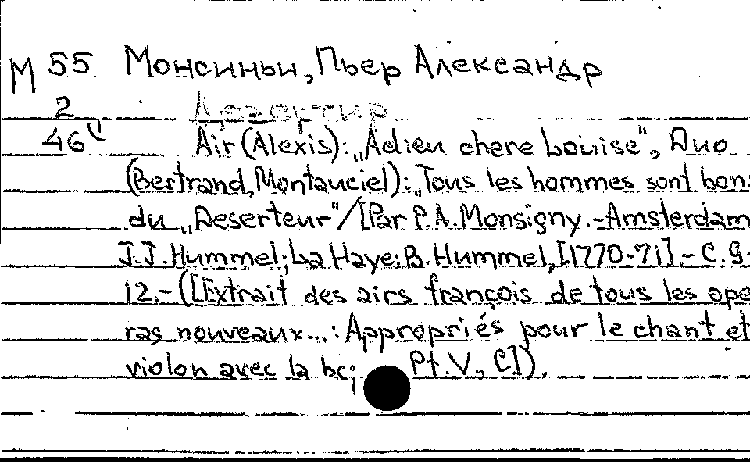 М 55 Монсиньи, Пьер Александр
2 Дезертир
46
Air (Alexis): „Adieu chere Louise", Duo
(Bertrand, Montauciel): „Tous les hommes sont bons
du „Deserteur"/[Par P.A. Monsigny.-Amsterdam
J.J. Hummel; La Haye: B. Hummel, [1770-71].- C.9-
12.- ([Extrait des airs françois de tous les ope
ras nouveaux...: Appropriés pour le chant et
violon avec la bc; Pt. V, C]).